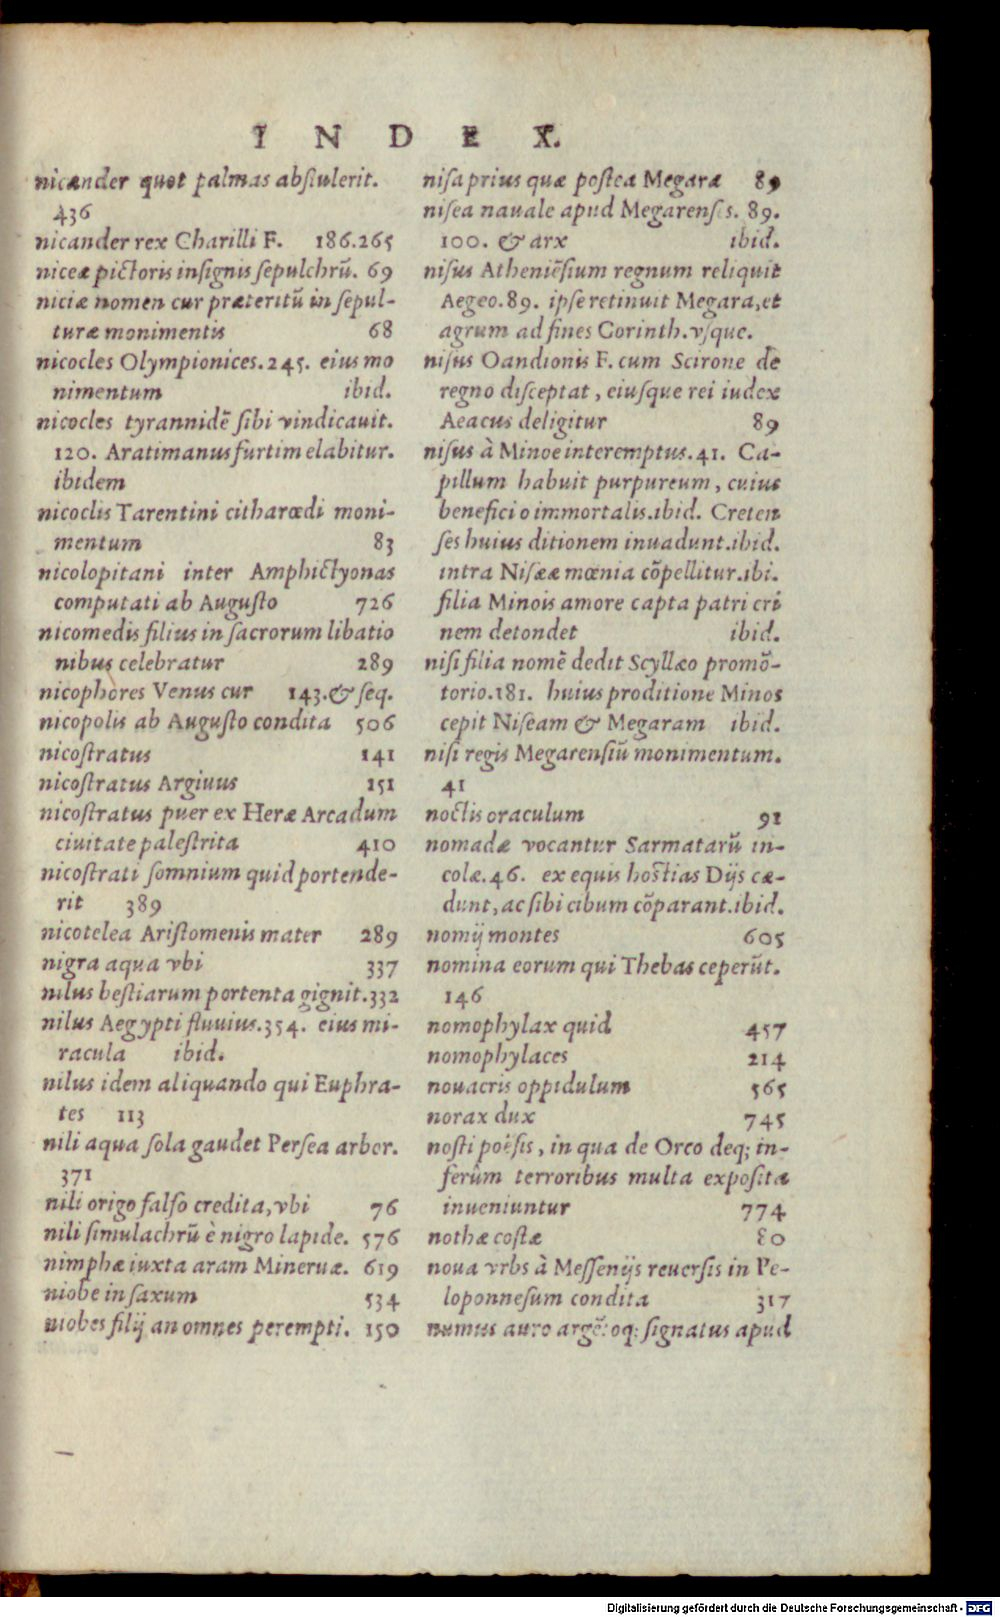 INDEX.
nicander quot palmas abſtulerit.
436
nicander rex Charilli F. 186.265
niceæ pictoris inſignis ſepulchrū. 69
niciæ nomen cur præteritū in ſepul-
turæ monimentis 68
nicocles Olympionices.245. eius mo
nimentum ibid.
nicocles tyrannidē ſibi vindicauit.
120. Arati manus furtim elabitur.
ibidem
nicoclis Tarentini citharœdi moni-
mentum 83
nicolopitani inter Amphictyonas
computati ab Auguſto 726
nicomedis filius in ſacrorum libatio
nibus celebratur 289
nicophores Venus cur 143.& ſeq.
nicopolis ab Auguſto condita 506
nicoſtratus 141
nicoſtratus Argiuus 151
nicoſtratus puer ex Heræ Arcadum
ciuitate paleſtrita 410
nicoſtrati ſomnium quid portende-
rit 389
nicotelea Ariſtomenis mater 289
nigra aqua vbi 337
nilus beſtiarum portenta gignit.332
nilus Aegypti fluuius.354. eius mi-
racula ibid.
nilus idem aliquando qui Euphra-
tes 113
nili aqua ſola gaudet Perſea arbor.
371
nili origo falſo credita, vbi 76
nili ſimulachrū è nigro lapide. 576
nimphæ iuxta aram Mineruæ. 619
niobe in ſaxum 534
niobes filij an omnes perempti. 150
niſa prius quæ poſtea Megaræ 89
niſea nauale apud Megarenſes. 89.
100. & arx ibid.
niſus Atheniēſium regnum reliquit
Aegeo.89. ipſe retinuit Megara, et
agrum ad fines Corinth. vſque.
niſus Oandionis F. cum Scirone de
regno diſceptat, eiuſque rei iudex
Aeacus deligitur 89
niſus à Minoe interemptus.41. Ca-
pillum habuit purpureum, cuius
beneficio immortalis.ibid. Creten
ſes huius ditionem inuadunt.ibid.
intra Niſææ mœnia cōpellitur.ibi.
filia Minois amore capta patri cri
nem detondet ibid.
niſi filia nomē dedit Scyllæo promō-
torio.181. huius proditione Minos
cepit Niſeam & Megaram ibid.
niſi regis Megarenſiū monimentum.
41
noctis oraculum 91
nomadæ vocantur Sarmatarū in-
colæ.46. ex equis hoſtias Dijs cæ-
dunt, ac ſibi cibum cōparant.ibid.
nomij montes 605
nomina eorum qui Thebas ceperūt.
146
nomophylax quid 457
nomophylaces 214
nouacris oppidulum 565
norax dux 745
noſti poëſis, in qua de Orco deq; in-
ferûm terroribus multa expoſita
inueniuntur 774
nothæ coſtæ 80
noua vrbs à Meſſenijs reuerſis in Pe-
loponneſum condita 317
numus auro argētoq; ſignatus apud
Digitalisierung gefördert durch die Deutsche Forschungsgemeinschaft - DFG